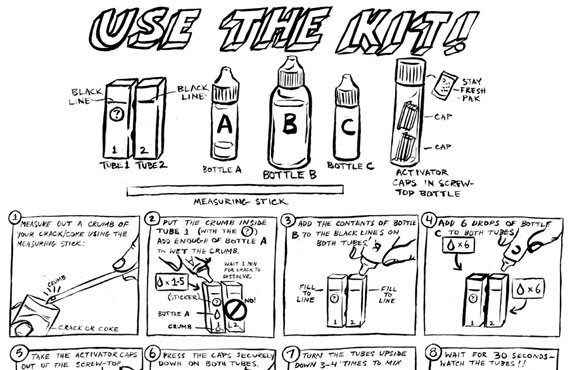 USE THE KIT!
BLACK LINE
BLACK LINE
?
1
2
TUBE 1
TUBE 2
A
BOTTLE A
B
BOTTLE B
C
BOTTLE C
STAY
FRESH
PAK
CAP
CAP
ACTIVATOR
CAPS IN SCREW-
TOP BOTTLE
MEASURING STICK
1
MEASURE OUT A CRUMB OF
YOUR CRACK/COKE USING THE
MEASURING STICK.
CRUMB
CRACK OR COKE
2
PUT THE CRUMB INSIDE
TUBE 1 (WITH THE ?)
ADD ENOUGH OF BOTTLE A
TO WET THE CRUMB.
WAIT 1 MIN
FOR CRACK TO
DISSOLVE.
x 1-5
(STICKER)
NO!
BOTTLE A
CRUMB
1
2
3
ADD THE CONTENTS OF BOTTLE
B TO THE BLACK LINES ON
BOTH TUBES.
FILL
TO
LINE
?
1
2
FILL
TO
LINE
4
ADD 6 DROPS OF BOTTLE
C TO BOTH TUBES
x 6
x 6
?
1
2
5
TAKE THE ACTIVATOR CAPS
OUT OF THE SCREW-TOP
6
PRESS THE CAPS SECURELY
DOWN ON BOTH TUBES.
7
TURN THE TUBES UPSIDE
DOWN 3-4 TIMES TO MIX
8
WAIT FOR 30 SECONDS-
WATCH THE TUBES!!